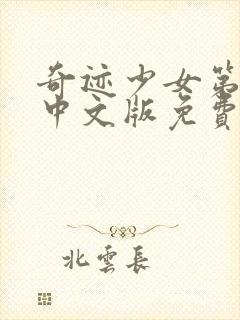 奇迹少女第
中文版免费
北雲長